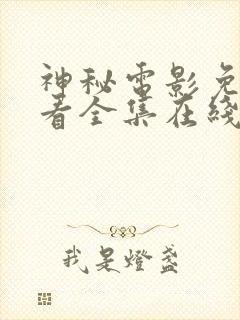 神秘电影免
看全集在线
我是燈盞